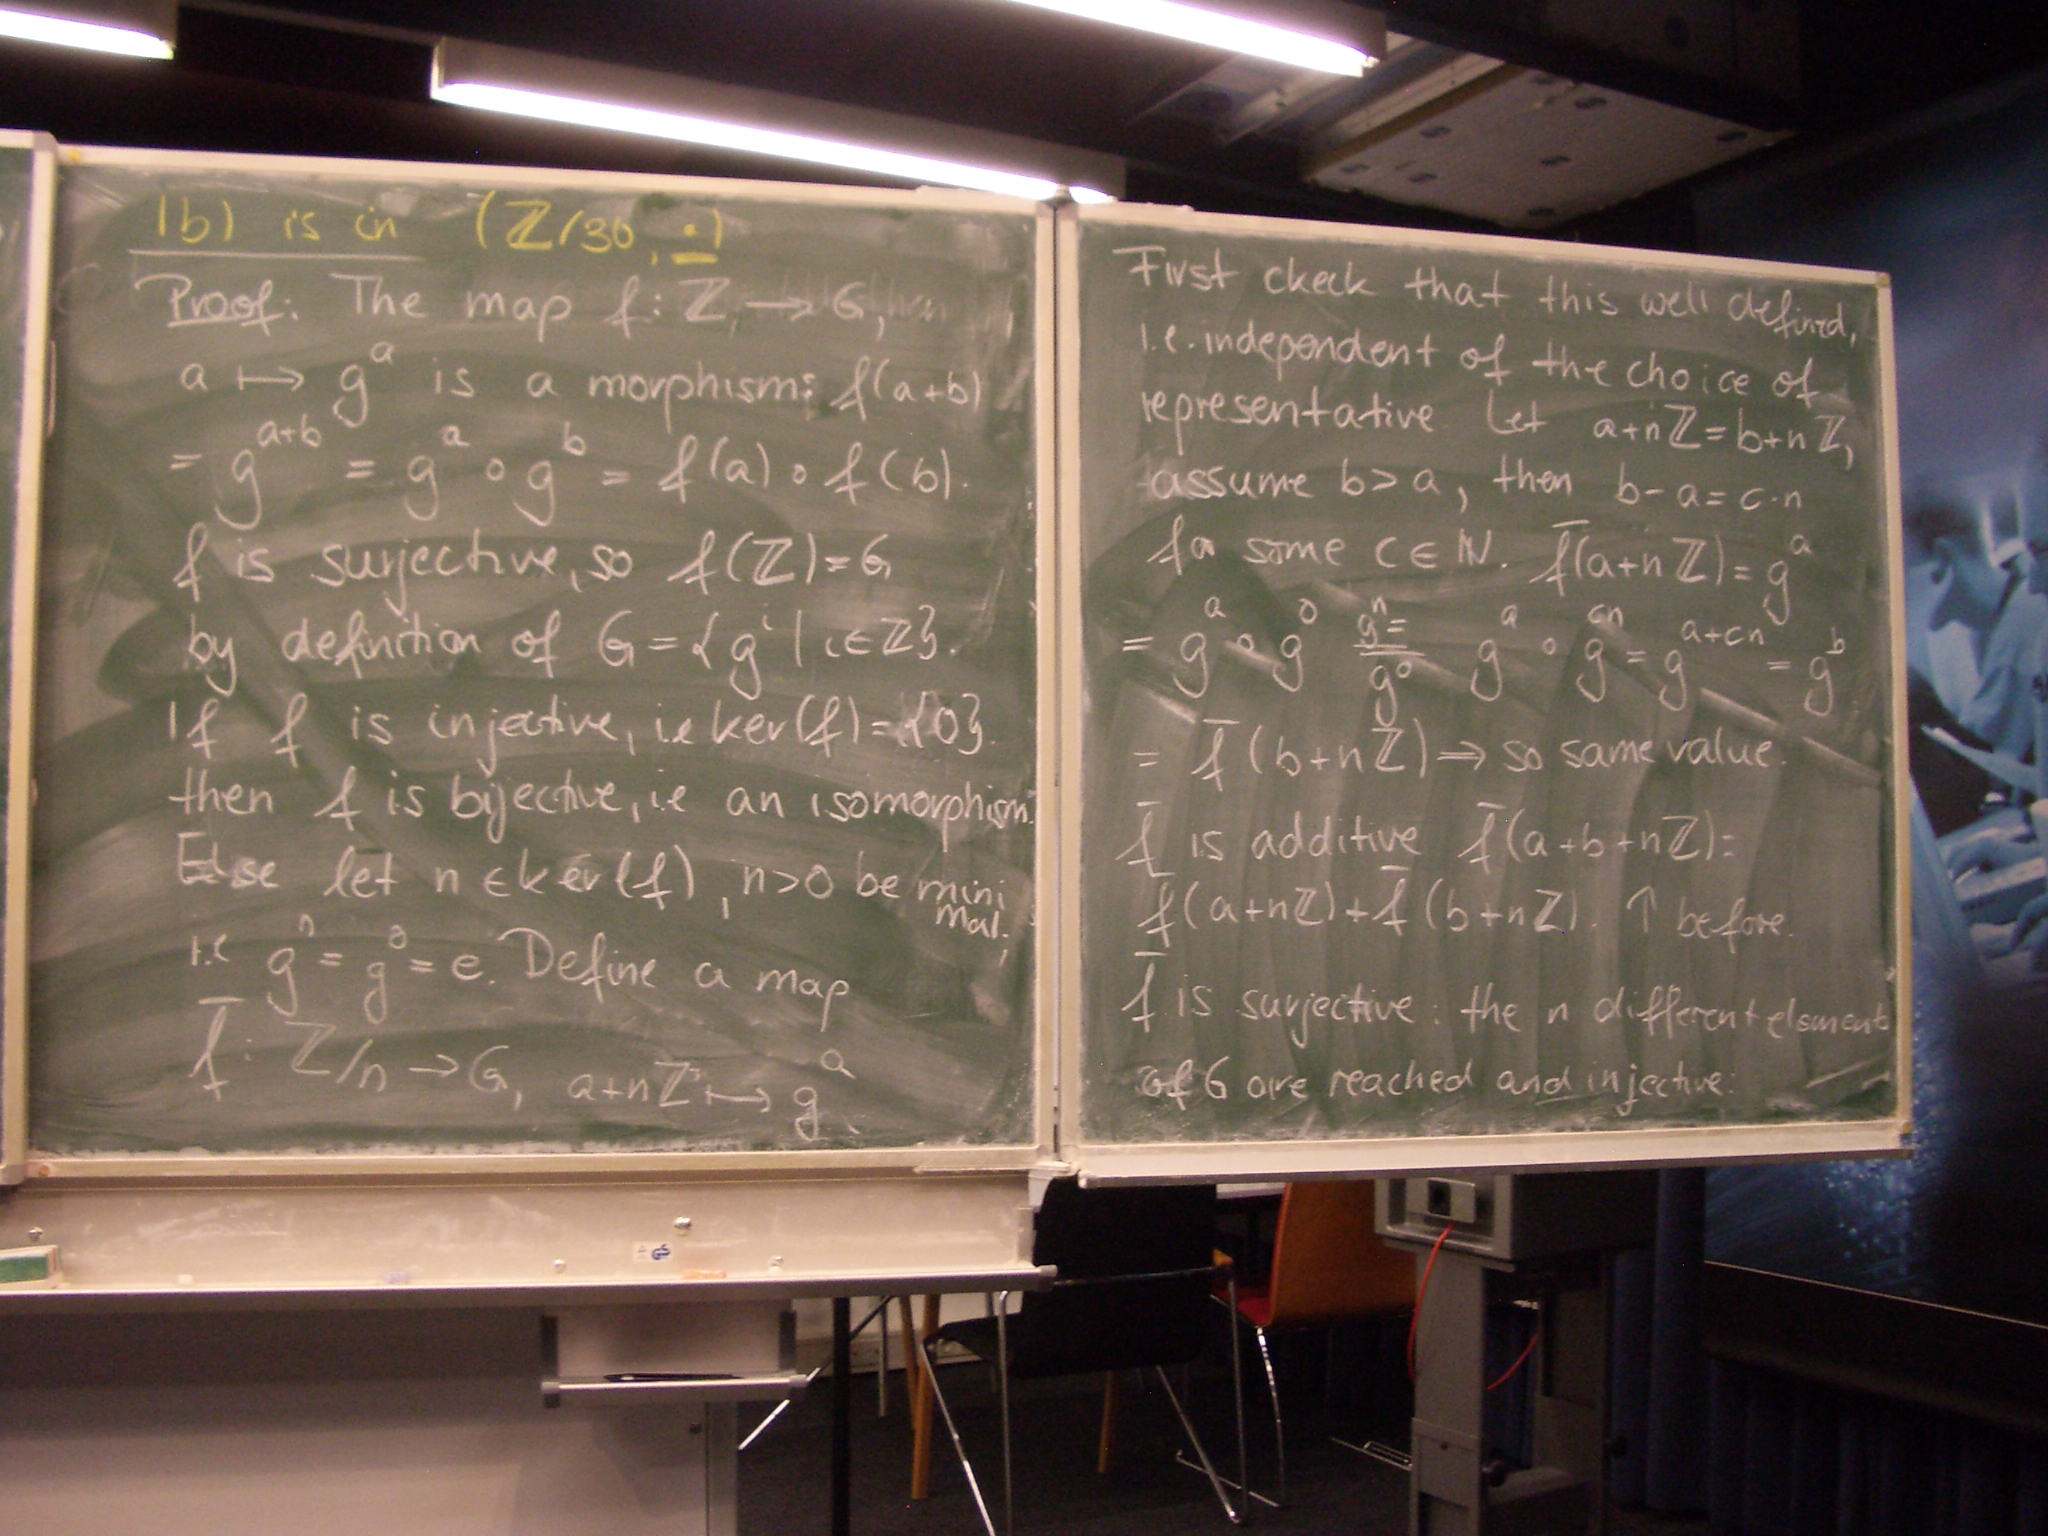 1b) is in (ℤ/30, ·)
Proof: The map f: ℤ → G,
a ↦ g^a is a morphism: f(a+b)
= g^{a+b} = g^a ∘ g^b = f(a) ∘ f(b).
f is surjective, so f(ℤ) = G
by definition of G = {g^i | i∈ℤ}.
If f is injective, i.e ker(f) = {0}.
then f is bijective, i.e an isomorphism.
Else let n ∈ ker(f), n>0 be mini
mal,
i.e g^n = g^0 = e. Define a map
f̄: ℤ/n → G, a+nℤ ↦ g^a.
First ckeck that this well defined,
i.e. independent of the choice of
representative. Let a+nℤ = b+nℤ,
assume b > a, then b - a = c·n
for some c ∈ ℕ. f̄(a+nℤ) = g^a
= g^a ∘ g^0 g^n = g^0 g^a ∘ g^{cn} = g^{a+cn} = g^b
= f̄(b+nℤ) ⇒ so same value.
f̄ is additive f̄(a+b+nℤ) =
f̄(a+nℤ) + f̄(b+nℤ). ↑ before.
f̄ is surjective: the n different elements
of G are reached and injective: